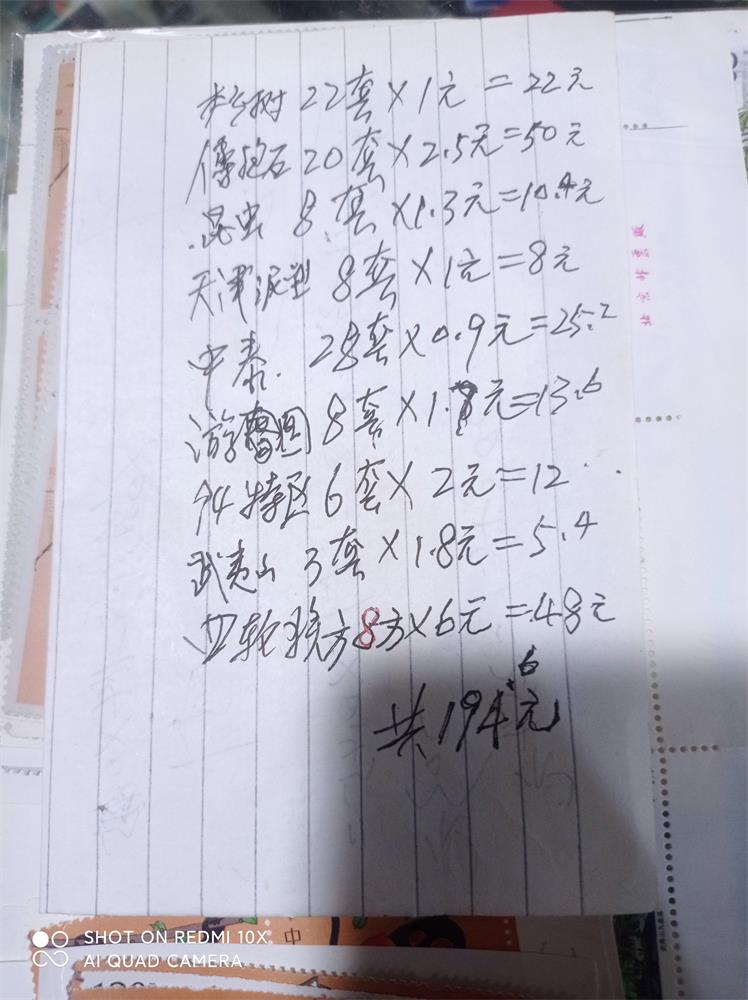 杉树 22套×1元=22元
傅抱石 20套×2.5元=50元
昆虫 8套×1.3元=10.4元
天津泥塑 8套×1元=8元
中泰. 28套×0.9元=25.2
游春图 8套×1.7元=13.6
94特区 6套×2元=12
武夷山 3套×1.8元=5.4
亚轮残方8方×6元=48元
共194.6元
SHOT ON REDMI 10X
AI QUAD CAMERA
中